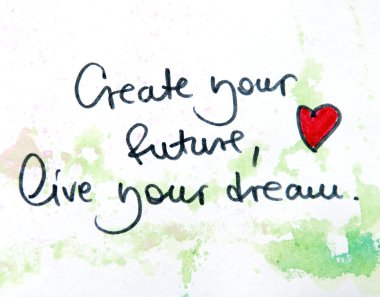 Create your
future,
live your dream.